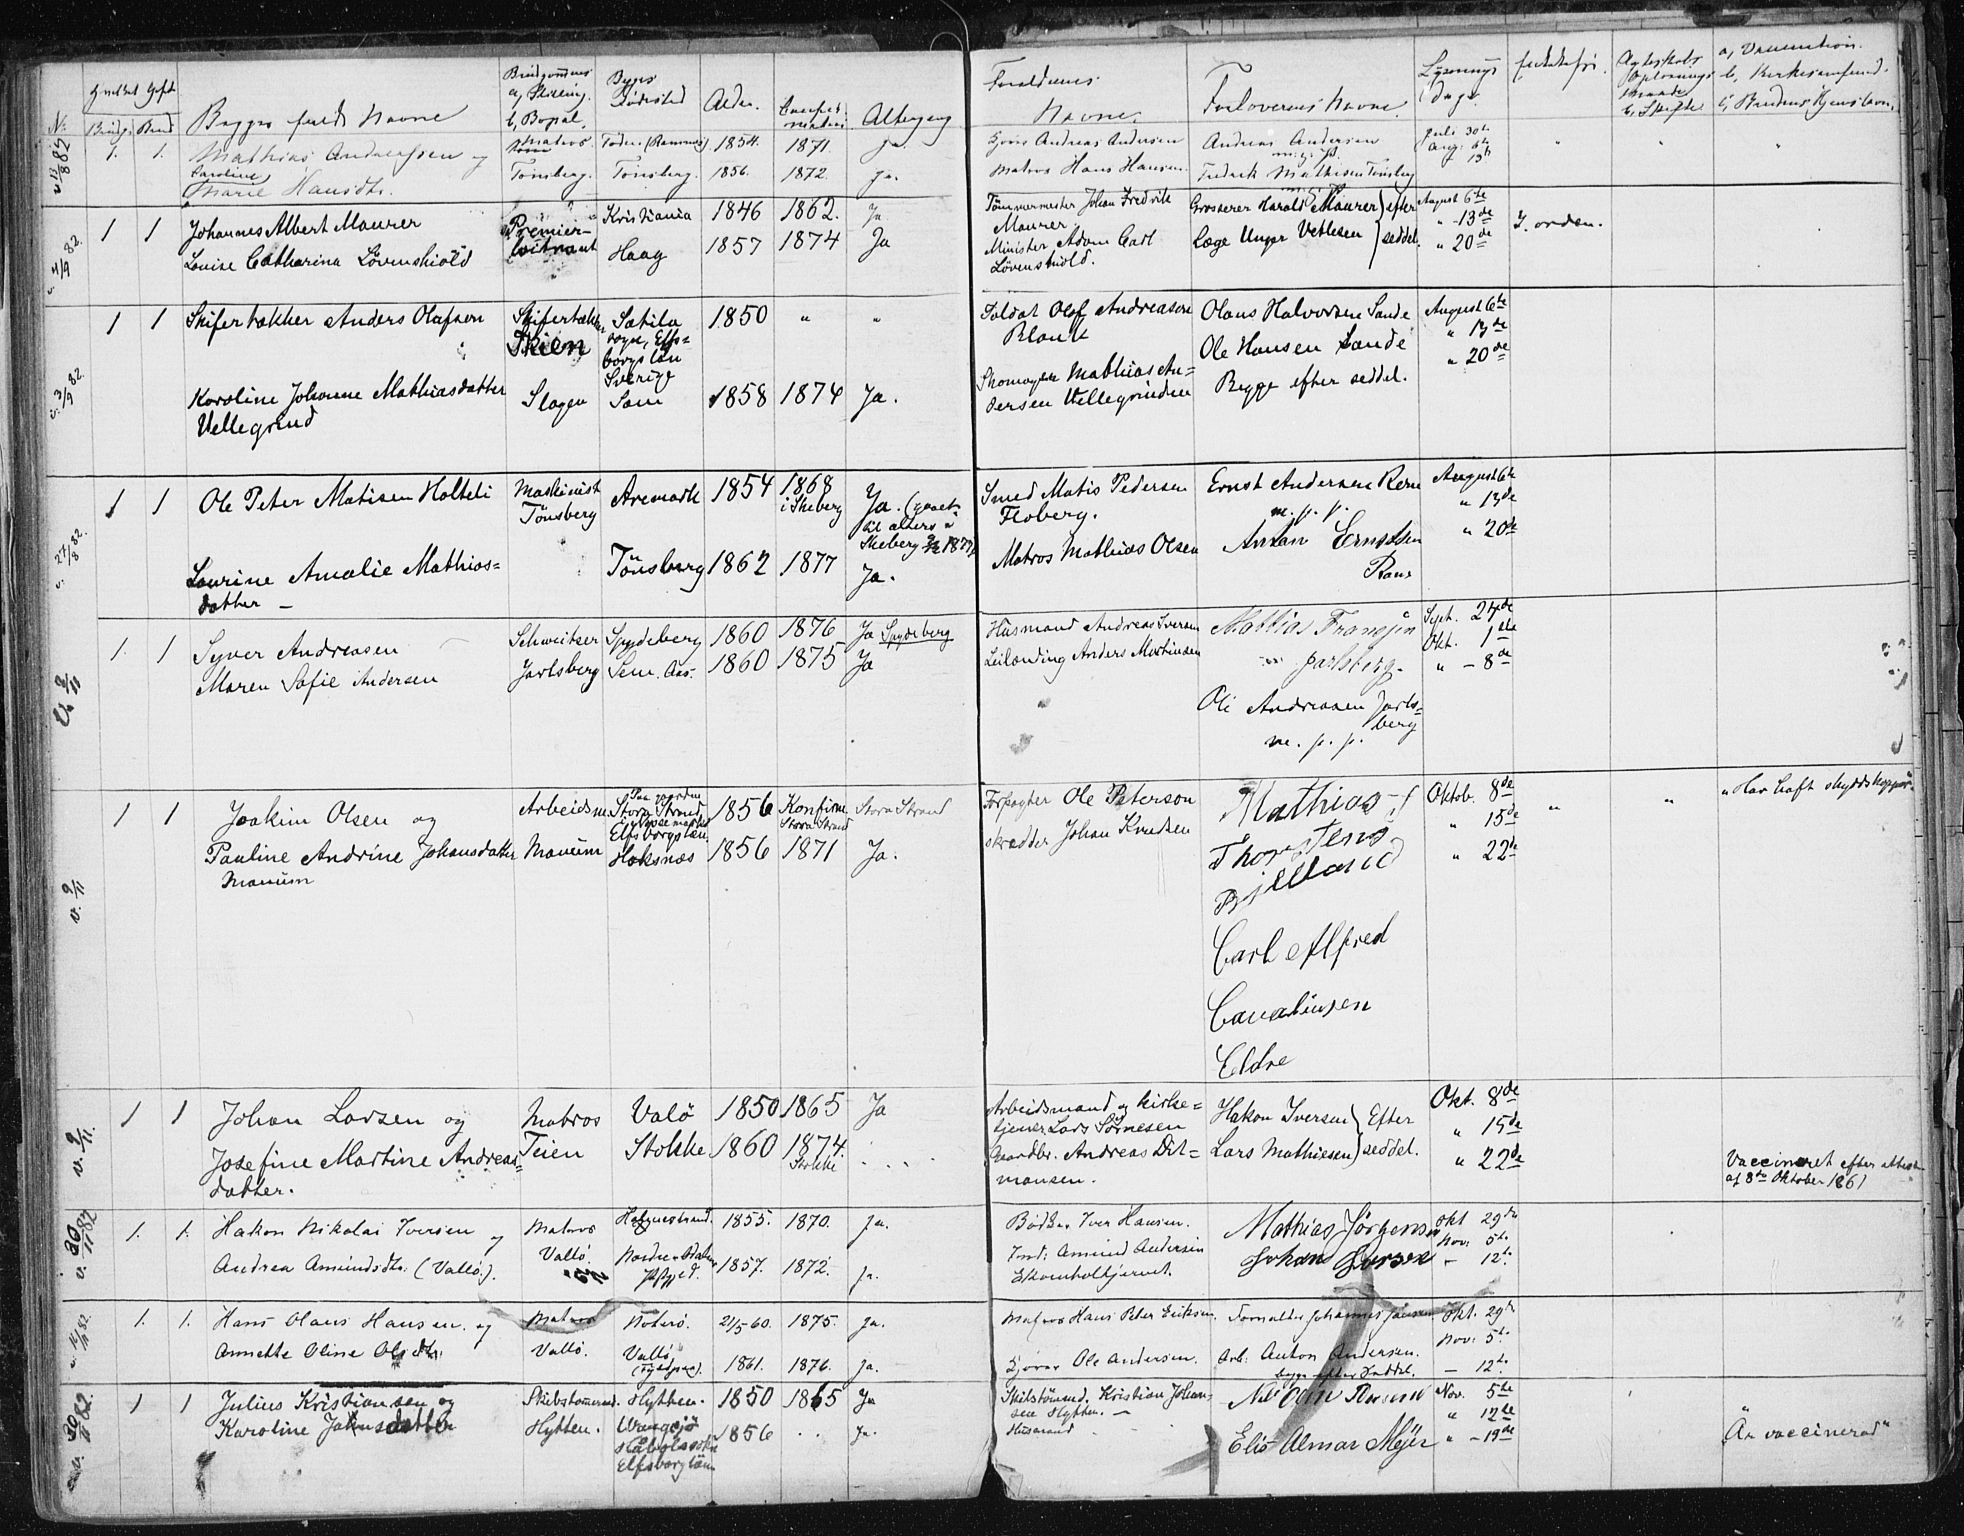 No
Hvilket Gift
Brudg. Brud
Begges fulde Navne
Brudgommens
a, Stilling.
b, Bopæl.
Begges
Fødested
Alder.
Altergang
Forældrenes
Navne.
Forlovernes Navne.
Lysnings
dage.
a, Vaccination.
b, Kirkesamfund.
13/8 82
1. 1.
Mathias Andreassen og
Caroline
Marie Hansdtr.
Matros.
Tönsberg.
Tönsberg.
1854. 1871. ja.
1856. 1872. ja.
Andreas Andersen
Matros Hans Hansen.
Andreas Andersen
Fredrik Mathisen Tönsberg
Juli 30te
Aug. 6te
13te
4/9 82.
1 1
Johannes Albert Maurer
Lovise Catharina Lövenskiold
Premier-
løitnant
Kristiania
Haag
1846 1862. Ja
1857 1874 Ja
Tömmermester Johan Fredrik
Maurer
Minister Adam Carl
Lövenskiold.
Grosserer Harald Maurer } efter
Læge Unger Vetlesen } seddel.
August 6te
" 13de
" 20de
I orden.
v. 3/9 82.
1 1
Skifertækker Anders Olafsen
Karoline Johanne Mathiasdatter
Vellegrind
Skifertækker
Skien
Slagen
Sätila
sogn, Elfs=
borgs län
Sverige
Sem
1850 " "
1858 1874 Ja.
Soldat Olof Andreasson
Blank
Skomager Mathias An=
dersen Vellegrinden
Olaus Halvorsen Sande
Ole Hansen Sande
Begge efter seddel.
August 6te
" 13de
" 20de
v. 27/8 82.
1 1
Ole Peter Matisen Holteli
Laurine Amalie Mathias=
datter –
Maskinist
Tönsberg
Aremark
Tönsberg
1854 1868
i Skeberg
1862 1877
Ja. (gaaet
til alters i
Skeberg 1877)
Ja.
Smed Matis Pedersen
Floberg.
Matros Mathias Olsen
Ernst Andersen
m. p. p.
Anton Ernstsen
August 6te
" 13de
" 20de
v. 2/11
1. 1
Syver Andreasen
Maren Sofie Andersen
Schweitser
Jarlsberg
Spydeberg
Sem. Aas.
1860 1876 Ja Spydeberg
1860 1875 Ja
Husmand Andreas Iversen
Leilænding Anders Martinsen
Mattias Fransjen
Jarlsberg.
Ole Andreasen Jarls=
berg
m. p. p.
Sept. 24de
Okt. 1ste
" – 8de
v. 9/11
1 1
Joakim Olsen og
Pauline Andrine Johansdatter
Manum
Arbeidsm.
Manum
Paa gaarden
Stora Strand
Elfsborgslän
Haksnæs
1856 Konfirm.
Stora Strand
Stora Strand
1856 1871 Ja.
Forpagter Ole Peterson
skrædder Johan Knudsen
Mathias
Thorstens
Bjelland
Carl Alfred
Eldre
Oktob. 8de
" 15de
" 22de
" "
"Har haft skyddskoppor."
v. 9/11.
1 1
Johan Larsen og
Josefine Martine Andreas=
datter.
Matros
Teien
Valö
Stokke
1850 1865 Ja
1860 1874.
Stokke
Arbeidsmand og kirke=
tjener Lars Sörnesen
Gaardbr. Andreas Dit=
mansen.
Hakon Iversen } Efter
Lars Mathiesen } seddel.
Okt. 8de
" 15de
" 22de
Vaccineret efter attest
af 8de Oktober 1861
v. 30/11 82
1. 1.
Hakon Nikolai Iversen og
Andrea Amundsdtr. (Vallö.).
Matros
Vallö.
Holmestrand.
Nordre
1855. 1870. Ja.
1857. 1872. Ja.
Bödker Iver Hansen.
Amund Andersen
Mathias Jörgensen
Johan Larsen
Okt 29de
Nov: 5te
– 12te
v. 16/11 82.
1. 1.
Hans Olaus Hansen. og
Annette Oline Olsdtr.
Matros
Vallö.
Nöterö.
Vallö
21/5 60. 1875. ja.
1861. 1876. Ja.
Matros Hans Peter Eriksen.
Ole Andersen.
Johannes Jansen
Arb: Anton Andersen.
begge efter Seddel.
Okt. 29de
Nov: 5te
– 12te
v. 30/11 82.
1 1
Julius Kristiansen og
Karoline Johnsdatter
Skibstömmerm.
Hytten.
Hytten.
Elfsborg län
1850 1865 Ja
1856 . . Ja.
Skibstömmd. Kristian Johan=
sen Hytten. –
Husmand
Elis Almar Mejer
Nov. 5te
" 12te
" – 19de
"Är vaccinerad"